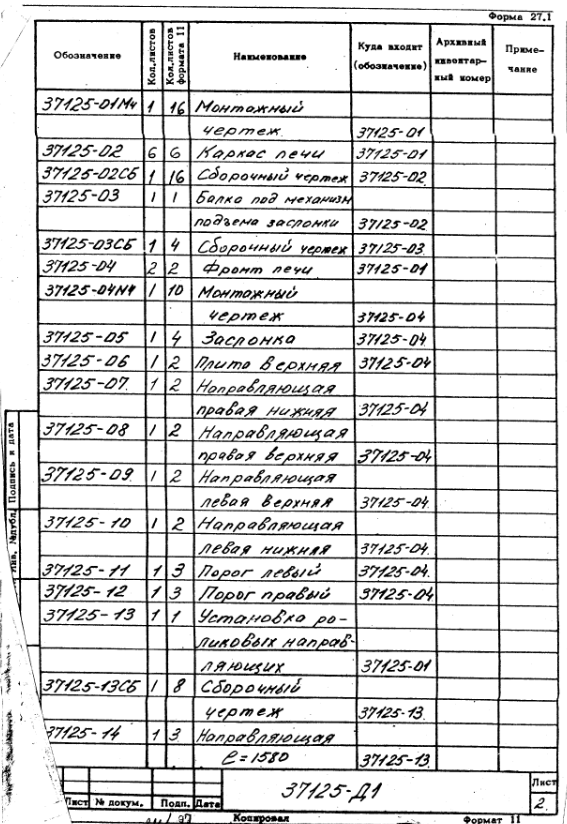 Форма 27.1
Обозначение Кол.листов Кол.листов формата 11 Наименование Куда входит (обозначение) Архивный инвентарный номер Примечание
37125-01МЧ 1 16 Монтажный
чертеж 37125-01
37125-02 6 6 Каркас печи 37125-01
37125-02СБ 1 16 Сборочный чертеж 37125-02
37125-03 1 1 Балка под механизм
подъема заслонки 37125-02
37125-03СБ 1 4 Сборочный чертеж 37125-03
37125-04 2 2 Фронт печи 37125-01
37125-04МЧ 1 10 Монтажный
чертеж 37125-04
37125-05 1 4 Заслонка 37125-04
37125-06 1 2 Плита верхняя 37125-04
37125-07 1 2 Направляющая
правая нижняя 37125-04
37125-08 1 2 Направляющая
правая верхняя 37125-04
37125-09 1 2 Направляющая
левая верхняя 37125-04
37125-10 1 2 Направляющая
левая нижняя 37125-04
37125-11 1 3 Порог левый 37125-04
37125-12 1 3 Порог правый 37125-04
37125-13 1 1 Установка ро-
ликовых направ-
ляющих 37125-01
37125-13СБ 1 8 Сборочный
чертеж 37125-13
37125-14 1 3 Направляющая
ℓ=1580 37125-13
Инв. №дубл. Подпись и дата
37125-Д1
Лист
2
Лист № докум. Подп. Дата
Копировал Формат 11